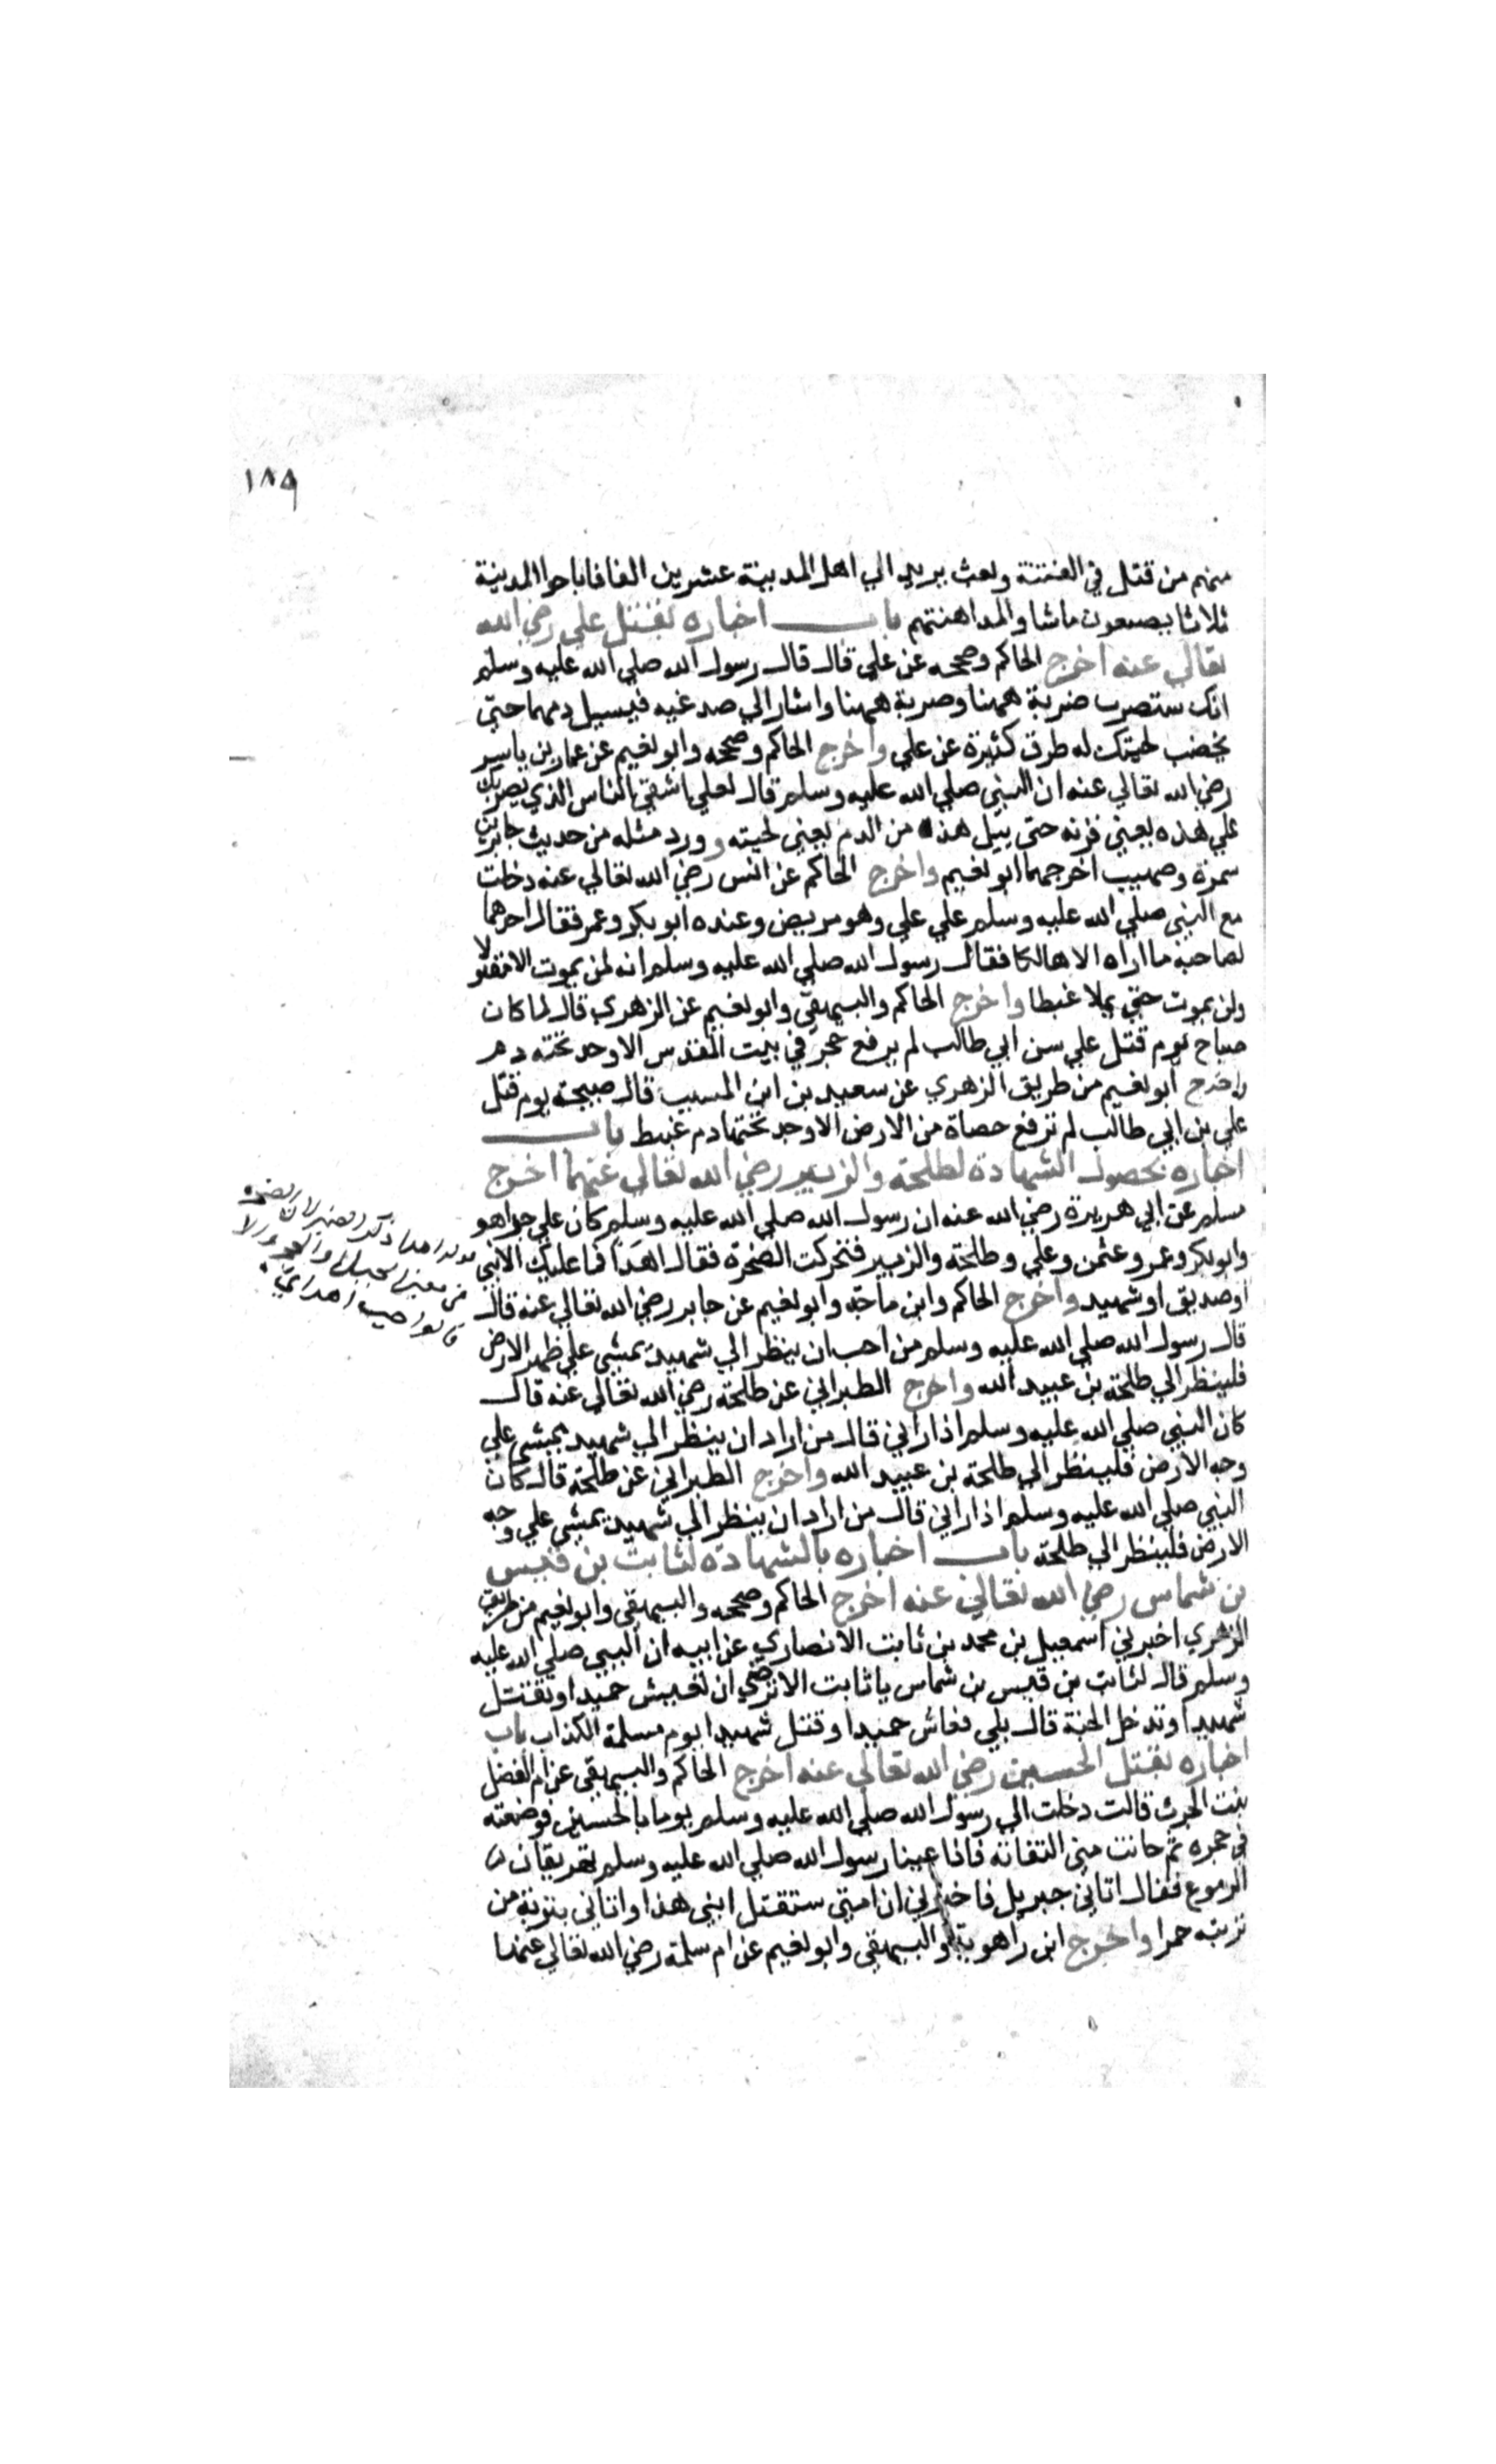 ١٨٩
منهم من قتل في الفتنة وبعث يزيد الي اهل المدينة عشرين الفا فاباحوا المدينة
ثلاثا يصنعون ماشاوا لمداهنتهم باب اخباره بقتل علي رضي الله
تعالي عنه اخرج الحاكم وصححه عن علي قال قال رسول الله صلي الله عليه وسلم
انك ستضرب ضربة ههنا وضربة ههنا واشار الي صدغيه فيسيل دمهما حتي
يخضب لحيتك له طرق كثيرة عن علي واخرج الحاكم وصححه وابو نعيم عن عمار بن ياسر
رضي الله تعالي عنه ان النبي صلي الله عليه وسلم قال لعلي اشقي الناس الذي يضربك
علي هذه يعني قرنه حتي يبل هذه من الدم يعني لحيته وورد مثله من حديث جابر بن
سمرة وصهيب اخرجهما ابو نعيم واخرج الحاكم عن انس رضي الله تعالي عنه دخلت
مع النبي صلي الله عليه وسلم علي علي وهو مريض وعنده ابو بكر وعمر فقال احدهما
لصاحبه ما اراه الا هالكا فقال رسول الله صلي الله عليه وسلم انه لن يموت الا مقتولا
ولن يموت حتي يملا غيظا واخرج الحاكم والبيهقي وابو نعيم عن الزهري قال لما كان
صباح يوم قتل علي بن ابي طالب لم يرفع حجر في بيت المقدس الا وجد تحته دم
واخرج ابو نعيم من طريق الزهري عن سعيد بن ابن المسيب قال صبيحة يوم قتل
علي بن ابي طالب لم ترفع حصاة من الارض الا وجد تحتها دم عبيط باب
اخباره بحصول الشهادة لطلحة والزبير رضي الله تعالي عنهما اخرج
مسلم عن ابي هريرة رضي الله عنه ان رسول الله صلي الله عليه وسلم كان علي حرا هو
وابو بكر وعمر وعثمن وعلي وطلحة والزبير فتحركت الصخرة فقال اهدا فما عليك الا نبي
او صديق او شهيد واخرج الحاكم وابن ماجه وابو نعيم عن جابر رضي الله تعالي عنه قال
قال رسول الله صلي الله عليه وسلم من احب ان ينظر الي شهيد يمشي علي ظهر الارض
فلينظر الي طلحة بن عبيد الله واخرج الطبراني عن طلحة رضي الله تعالي عنه قال
كان النبي صلي الله عليه وسلم اذا راني قال من اراد ان ينظر الي شهيد يمشي علي
وجه الارض فلينظر الي طلحة بن عبيد الله واخرج الطبراني عن طلحة قال كان
النبي صلي الله عليه وسلم اذا راني قال من اراد ان ينظر الي شهيد يمشي علي وجه
الارض فلينظر الي طلحة باب اخباره بالشهادة لثابت بن قيس
بن شماس رضي الله تعالي عنه اخرج الحاكم وصححه والبيهقي وابو نعيم من طريق
الزهري اخبرني اسمعيل بن محمد بن ثابت الانصاري عن ابيه ان النبي صلي الله عليه
وسلم قال لثابت بن قيس بن شماس يا ثابت الا ترضي ان تعيش حميدا وتقتل
شهيدا وتدخل الجنة قال بلي فعاش حميدا وقتل شهيدا يوم مسلمة الكذاب باب
اخباره بقتل الحسين رضي الله تعالي عنه اخرج الحاكم والبيهقي عن ام الفضل
بنت الحرث قالت دخلت الي رسول الله صلي الله عليه وسلم يوما بالحسين فوضعته
في حجره ثم حانت مني التفاتة فاذا عينا رسول الله صلي الله عليه وسلم تهريقان من
الدموع فقال اتاني جبريل فاخبرني ان امتي ستقتل ابني هذا واتاني بتربة من
تربته حمرا واخرج ابن راهويه والبيهقي وابو نعيم عن ام سلمة رضي الله تعالي عنها